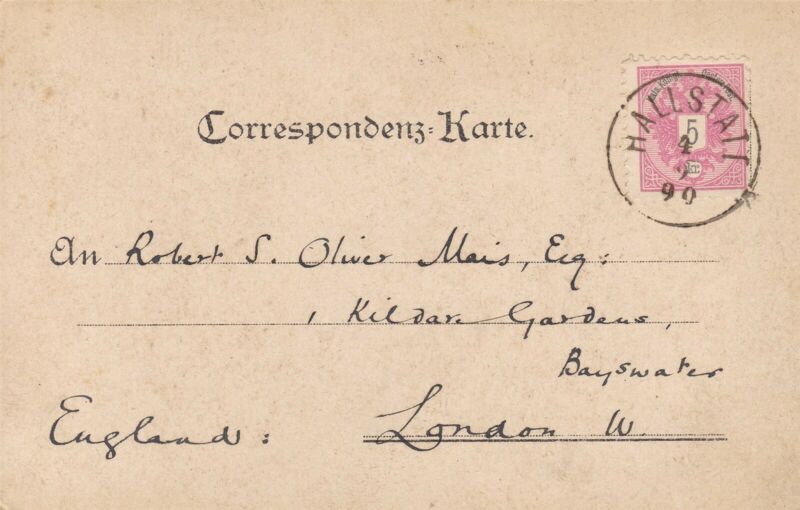 Correspondenz-Karte.
HALLSTATT
5
kr.
90
An Robert S. Oliver Mais, Esq:
1 Kildare Gardens,
Bayswater
England: London W.